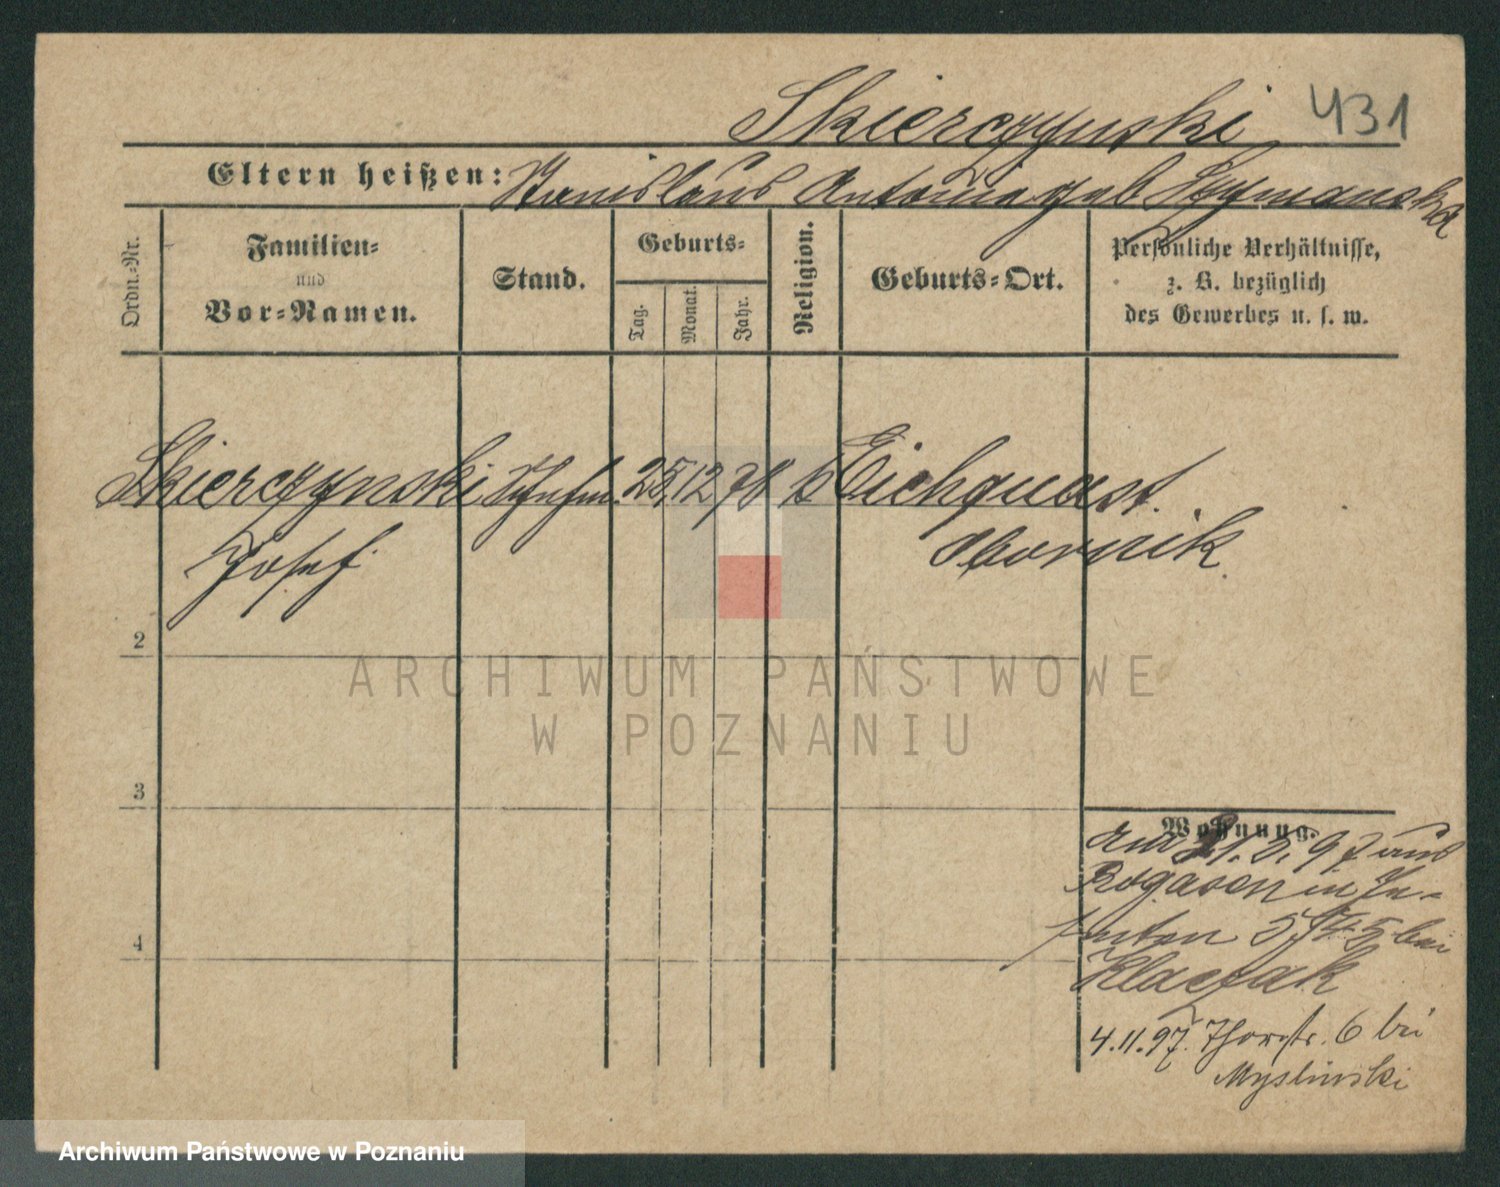 Skierczynski 431
Eltern heißen: Stanislaus Antonia geb Szymanska
Ordn.-Nr.
Familien-
und
Vor-Namen.
Stand.
Geburts-
Tag.
Monat.
Jahr.
Religion.
Geburts-Ort.
Persönliche Verhältnisse,
z. B. bezüglich
des Gewerbes u. s. w.
Skierczynski 25 12 78 k Eichquast.
Josef. Obornik.
2
3
4
Wohnung.
am 21. 3. 97 aus
Rogasen in
5 bei
4.11.97. Thorstr. 6 bei
Myslinski
ARCHIWUM PAŃSTWOWE
W POZNANIU
Archiwum Państwowe w Poznaniu